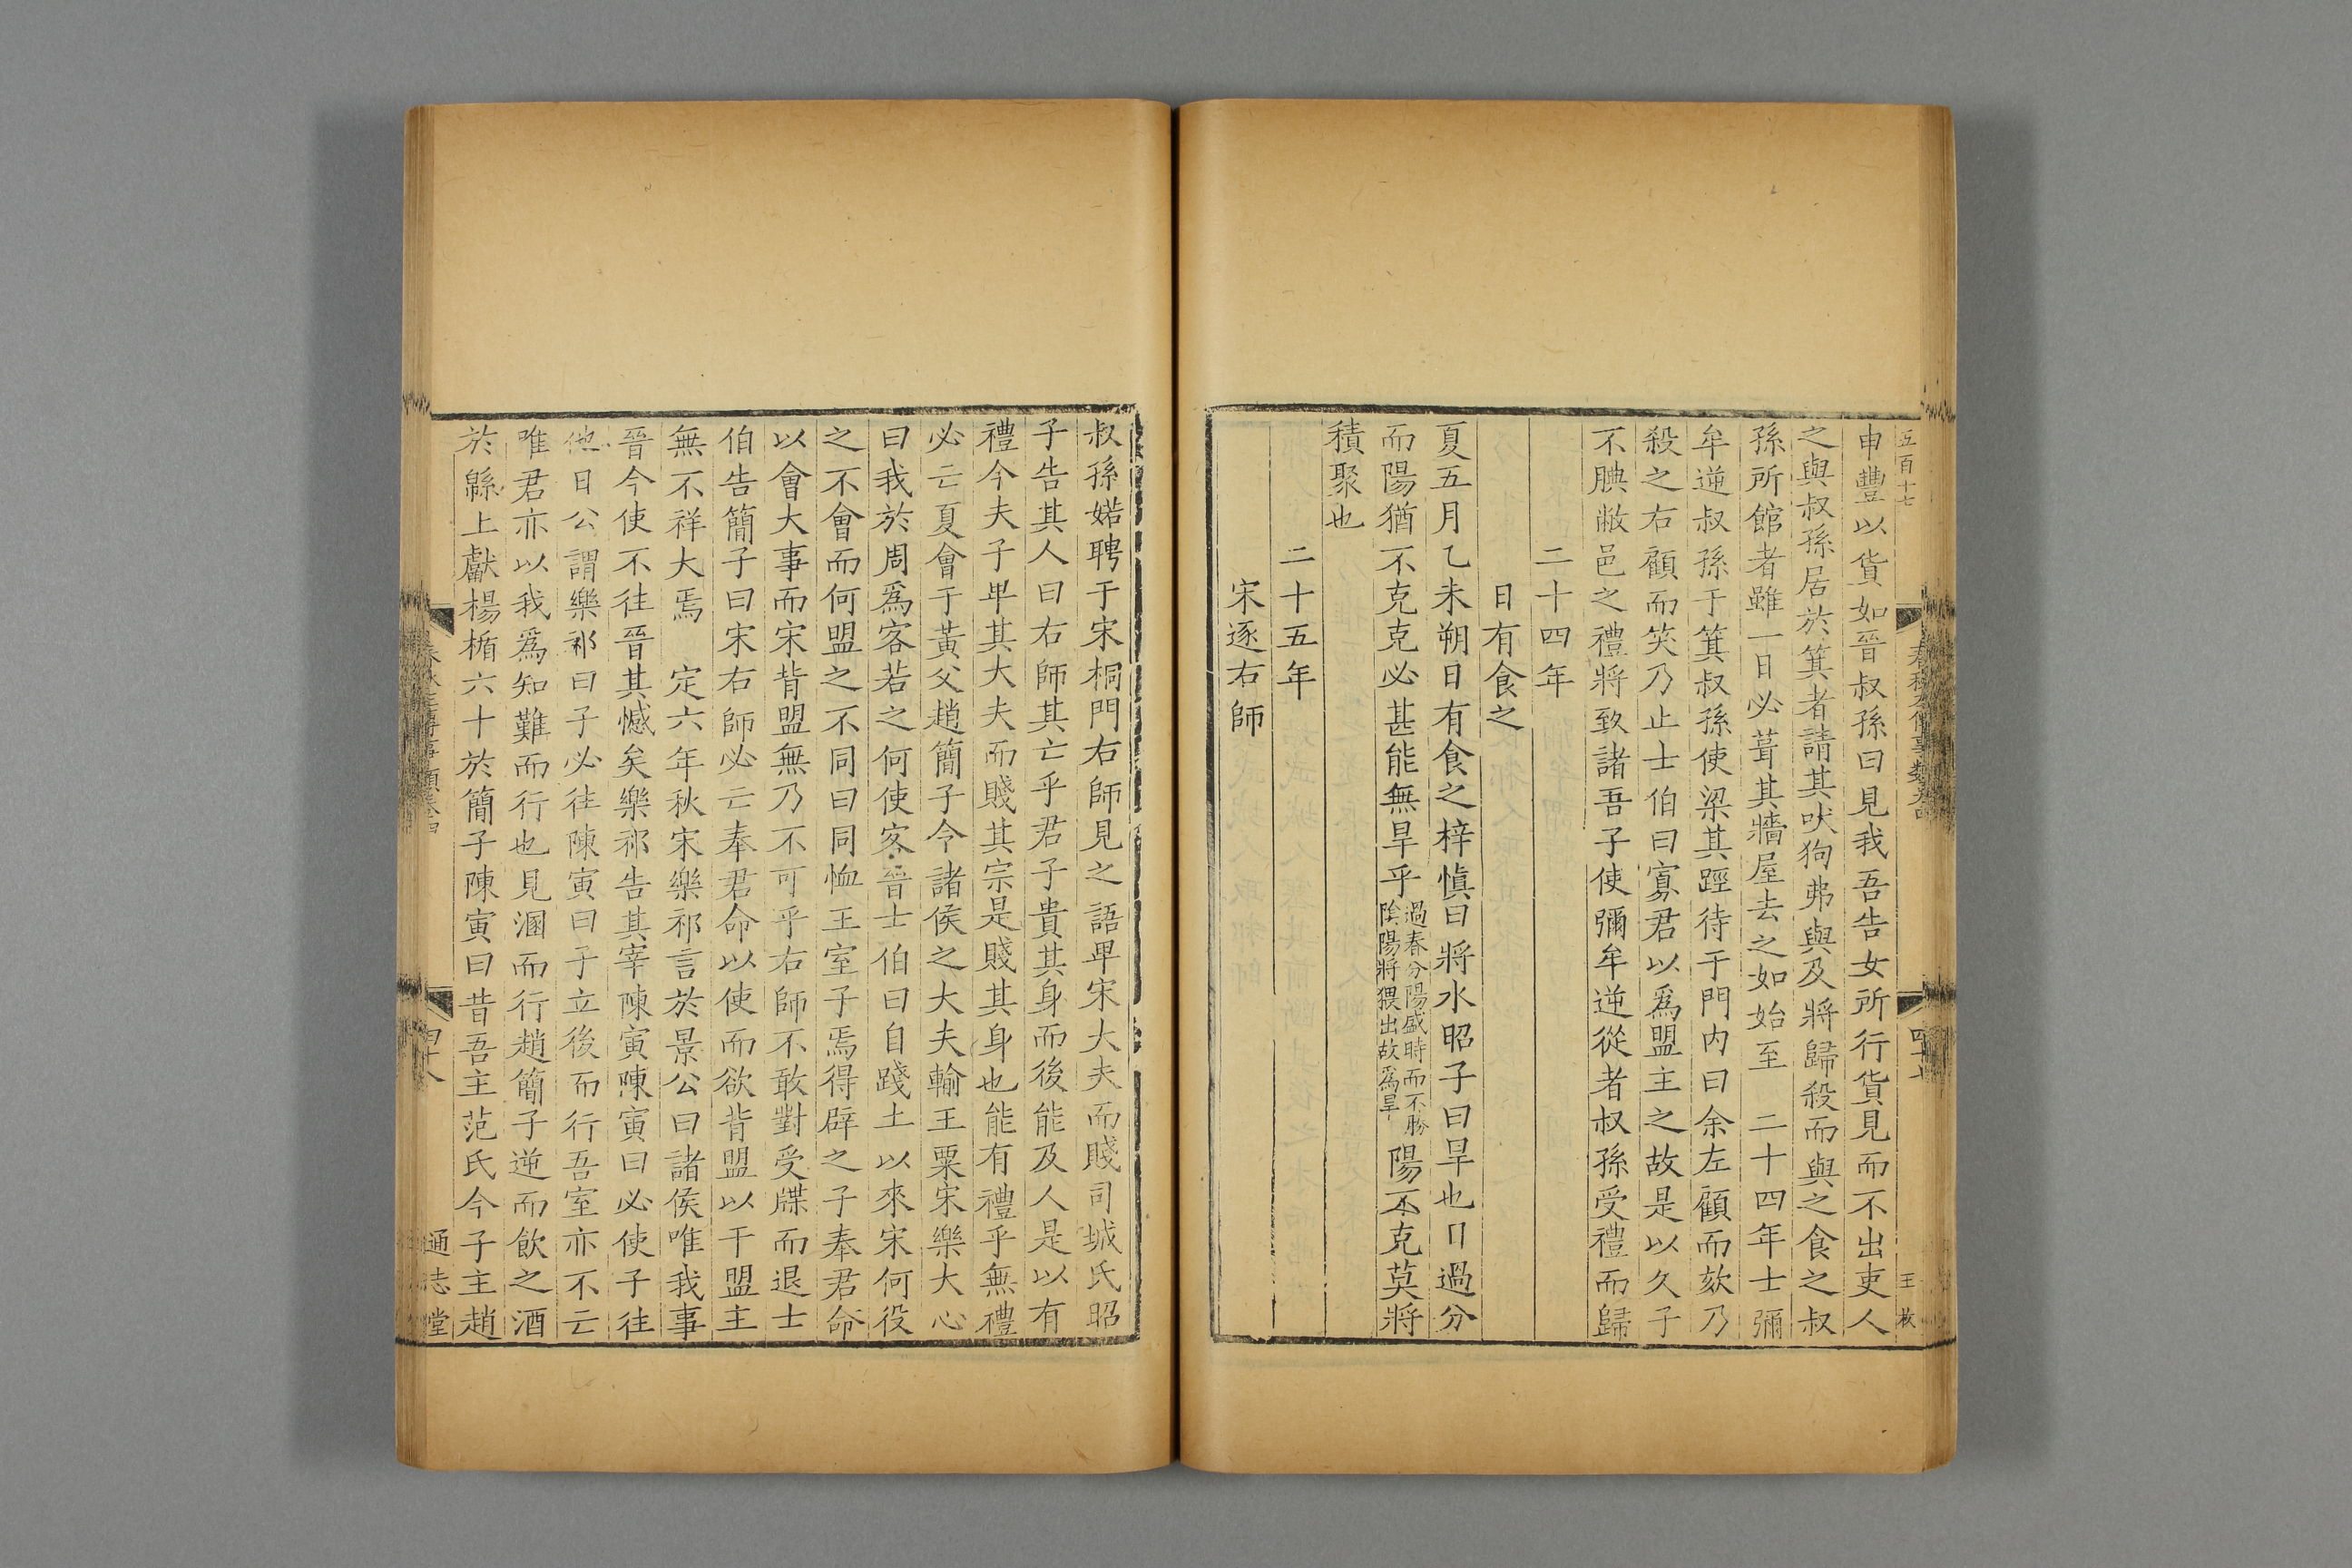 五百十七
王
申豐以貨如晉叔孫曰見我吾告女所行貨見而不出吏人
之與叔孫居於箕者請其吠狗弗與及將歸殺而與之食之叔
孫所館者雖一日必葺其牆屋去之如始至 二十四年士彌
牟逆叔孫于箕叔孫使梁其踁待于門内曰余左顧而欬乃
殺之右顧而笑乃止士伯曰寡君以爲盟主之故是以久子
不腆敝邑之禮將致諸吾子使彌牟逆從者叔孫受禮而歸
二十四年
日有食之
夏五月乙未朔日有食之梓愼曰將水昭子曰旱也日過分
而陽猶不克克必甚能無旱乎過春分陽盛時而不勝陰陽將猥出故爲旱陽不克莫將
積聚也
二十五年
宋逐右師
叔孫婼聘于宋桐門右師見之語卑宋大夫而賤司城氏昭
子告其人曰右師其亡乎君子貴其身而後能及人是以有
禮今夫子卑其大夫而賤其宗是賤其身也能有禮乎無禮
必亡夏會于黃父趙簡子令諸侯之大夫輸王粟宋樂大心
曰我於周爲客若之何使客晉士伯曰自踐土以來宋何役
之不會而何盟之不同曰同恤王室子焉得辟之子奉君命
以會大事而宋背盟無乃不可乎右師不敢對受牒而退士
伯告簡子曰宋右師必亡奉君命以使而欲背盟以干盟主
無不祥大焉 定六年秋宋樂祁言於景公曰諸侯唯我事
晉今使不往晉其憾矣樂祁告其宰陳寅陳寅曰必使子往
他日公謂樂祁曰子必往陳寅曰子立後而行吾室亦不亡
唯君亦以我爲知難而行也見溷而行趙簡子逆而飲之酒
於緜上獻楊楯六十於簡子陳寅曰昔吾主范氏今子主趙
四十八
通志堂